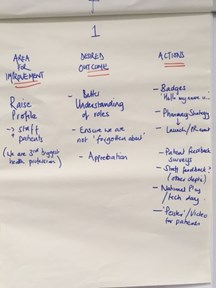 1
AREA
FOR
IMPROVEMENT
Raise
Profile
→ staff
patients
(We are 3rd biggest
health profession)
DESIRED
OUTCOME
- Better
Understanding
of roles
- Ensure we are
not 'forgotten about'
- Appreciation
ACTIONS
- Badges
'Hello my name is...
- Pharmacy Strategy
- Launch/
- Patient feedback
surveys
- Staff feedback
(other depts)
- National Pharm
/tech day
- 'Poster'/Video
for patients